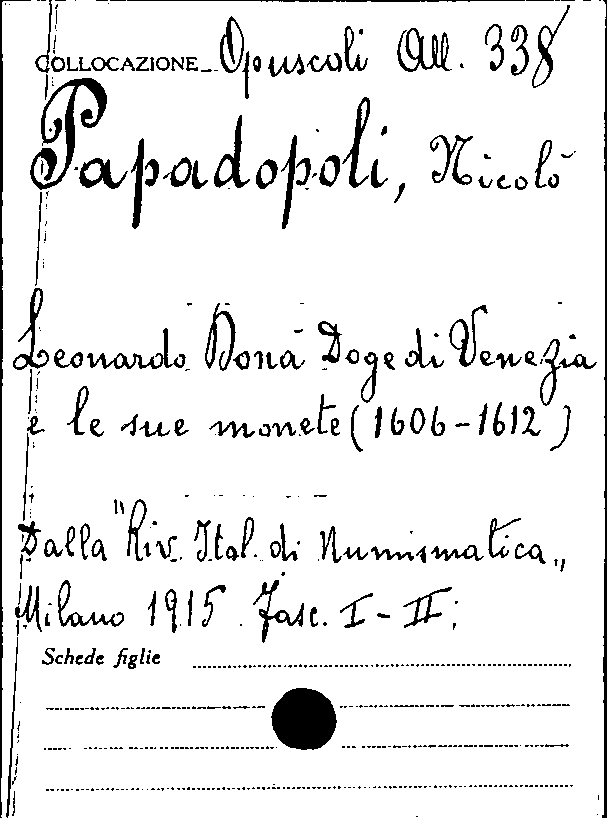 COLLOCAZIONE Opuscoli All. 338
Papadopoli, Nicolò
Leonardo Donà Doge di Venezia
e le sue monete (1606-1612)
Dalla "Riv. Ital. di Numismatica„
Milano 1915. Fasc. I-II;
Schede figlie